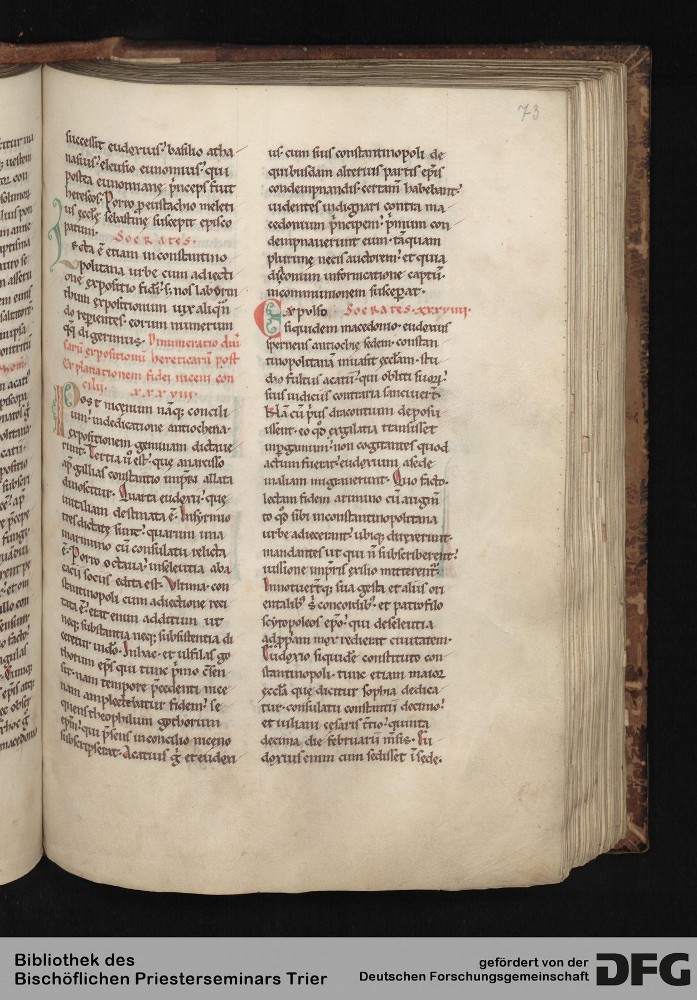 73
successit eudoxius; basilio atha
nasius; eleusio eunomius; qui
postea eunomianę pͥnceps fuit
hereseos. Porro ꝓ eustachio meleti
us ęccłę sebastinę suscepit episco
patum. Socrates.
Lecta ē etiam in constantino
politana urbe cum adiecti
one expositio fidei. s; nos labyrin
thum expositionum uix aliqn̄
do repientes. eorum numerum
digerimus. Dinumeratio diū
sarū expositionū hereticarū post
explanationem fidei niceni con
cilii. XXXVIII.
Post nicenum nāq; concili
um; in dedicatione antiochena
expositionem geminam dictaue
runt. Tertia ū est; quę a narcisso
ap̄ gallias constantio impr̄i allata
dinoscitur. Quarta eudoxii; quę
in italiam destinata ē. In syrmio
tres dictatę sunt; quarum una
in arimino cū consulatu relicta
ē. Porro octaua in seleutia aba
cacii sociis edita est. Vltima con
stantinopoli cum adiectione reci
tata ē. erat enim additum ut
neq; substantia neq; subsistentia di
ceretur in dō. In hac et ulfilas go
thorum ep̄s qui tunc pͥmo c̄sen
sit. nam tempore pͥcedenti nice
nam amplectebatur fidem; se
quens theophilum gothorum
ep̄m; qui pͥsens in concilio niceno
subscripserat. Acatius g̊ et eudoxi
us cum suis constantinopoli de
quibusdam alterius partis ep̄is
condempnandis certam̄ habebant;
uidentes indignari contra ma
cedonium pͥncipem. pͥmum con
dempnauerunt eum. tāquam
plurimę necis auctorem; et quia
diaconum in fornicatione captū
in communionem susceperat.
Expulso Socrates. XXXVIIII.
siquidem macedonio. eudoxius
spernens antiochię sedem. constan
tinopolitanā inuasit ęcclam. stu
dio fultus acatii; qui obliti suorū
suis iudiciis contraria sanciuert̄.
Nā cū pͥus dracontium deposu
issent. eo qd̓ ex galatia transisset
in pergamum; non cogitantes quod
actum fuerat; eudoxium a sede
in aliam migrauerunt. Quo facto.
lectam fidem arimino cū augm̄
to qd̓ sibi in constantinopolitana
urbe adiecerant; ubiq; direxerunt.
mandantes ut qui n̄ subscriberent;
iussione impr̄is exilio mitterent̄.
Innotuert̄q; sua gesta et aliis ori
entalib; s; concordib; et patrofilo
scytopoleos ep̄o; qui de seleutia
ad ppiam mox redierat ciuitatem.
Eudoxio siquidē constituto con
stantinopoli. tunc etiam maior
ęcclā que dicitur sophia dedica
tur. consulatu constantii decimo;
et iuliani cesaris t̄tio; quinta
decima die februarii m̄sis. Eu
doxius enim cum sedisset ī sede.
Bibliothek des
Bischöflichen Priesterseminars Trier
gefördert von der
Deutschen Forschungsgemeinschaft
DFG